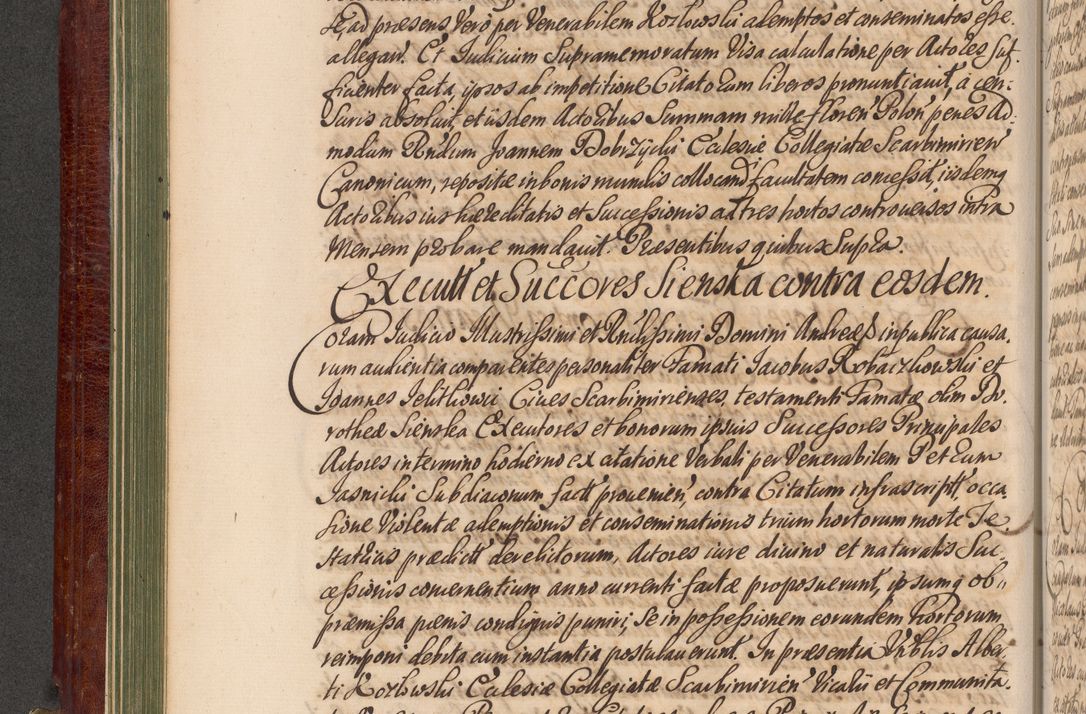 Et ad præsens Vero per Venerabilem Kozlowski ademptos et conseminatos esse
allegavt. Et Iudicium Supramemoratum Visa calculatione per Actores suf-
ficienter facta, ipsos ab impetitione Citatorum liberos pronuntiauit, a cen-
suris absoluit, et iisdem Actoribus Summam mille floren Polon penes Ad-
modum Rndum Joannem Dobrzycki Ecclesiæ Collegiatæ Scarbimirien
Canonicum, repositæ in bonis mundis collocand facultatem concessit, iisdemq
Actoribus ius hæreditatis et Successionis ad tres hortos controuersos intra
Mensem probare mandauit. Præsentibus quibus Supra.
Executt et Succores Sienska contra eosdem.
Coram Iudicio Illustrissimi et Rndissimi Domini Andreæ in publica causa-
rum audientia comparentes personaliter Famati Iacobus Robaczkowski et
Ioannes Ielitkowicz Ciues Scarbimirienses, testamenti Famatæ olim Do-
rotheæ Sienska Executores et bonorum ipsius Successores Principales
Actores in termino hodierno ex citatione Verbali per Venerabilem Petrum
Iasnicki Subdiaconum fact prouenien contra Citatum infrascriptt occa-
sione Violentæ ademptionis et conseminationis trium hortorum morte Te-
statricis prædictt derelictorum, Actores iure diuino et naturalis Suc-
cessionis conuenientium anno currenti factæ proposuerunt, ipsumq ob
præmissa pænis condignis puniri, se in possessionem eorundem Hortorum
reimponi debita cum instantia postulauerunt. In præsentia Vrblis Alber-
ti Kozlowski Ecclesiæ Collegiatæ Scarbimirien Vicarii et Communita-